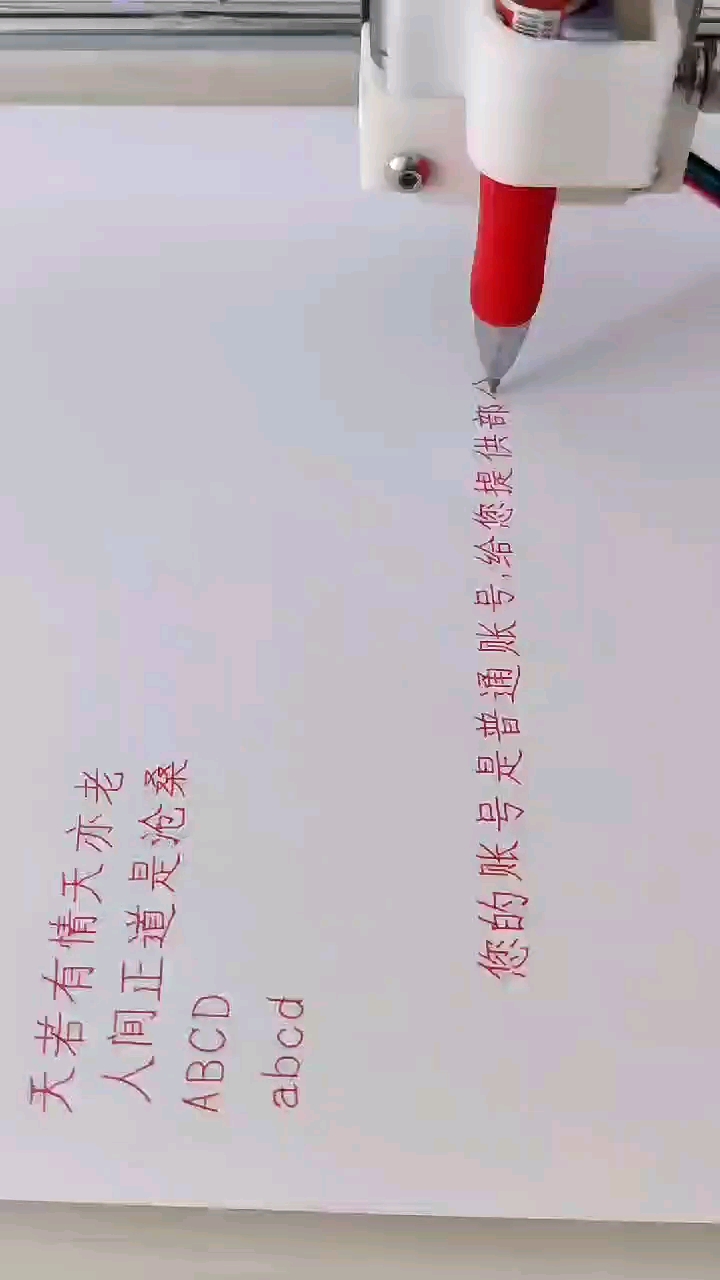 天若有情天亦老
人间正道是沧桑
ABCD
abcd
您的账号是普通账号,给您提供部